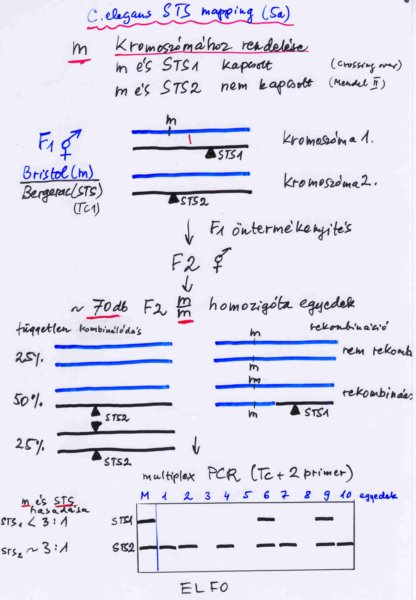 C. elegans STS mapping (5a)
m Kromoszómához rendelése
m és STS1 kapcsolt (crossing over)
m és STS2 nem kapcsolt (Mendel II)
m
F1
Kromoszóma 1.
STS1
Bristol (m)
Bergerac (STS)
(TC1)
Kromoszóma 2.
STS2
F1 öntermékenyítés
F2
~ 70 db F2 m/m homozigóta egyedek
független kombinálódás
rekombináció
25%
m
nem rekomb
m
m
rekombináns
50%
m
STS2
STS1
25%
STS2
multiplex PCR (Tc + 2 primer)
m és STS
hasadása
M 1 2 3 4 5 6 7 8 9 10 egyedek
STS1 < 3:1
STS1
STS2 ~ 3:1
STS2
ELFO